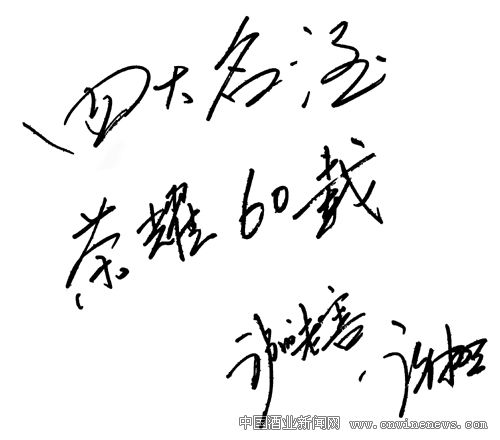 四大名酒
荣耀60载
泸州老窖
中国酒业新闻网 www.cnwinenews.com